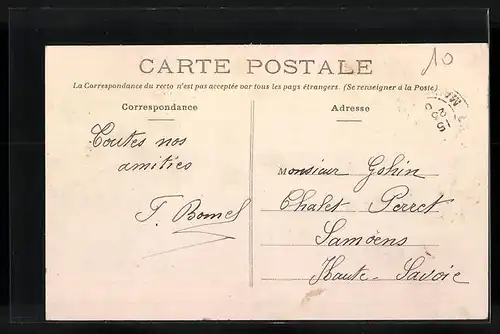 10
CARTE POSTALE
La Correspondance du recto n'est pas acceptée par tous les pays étrangers. (Se renseigner à la Poste)
Correspondance
Adresse
Toutes nos
amitiés
Monsieur Gohin
Chalet Perret
Samoëns
Haute-Savoie